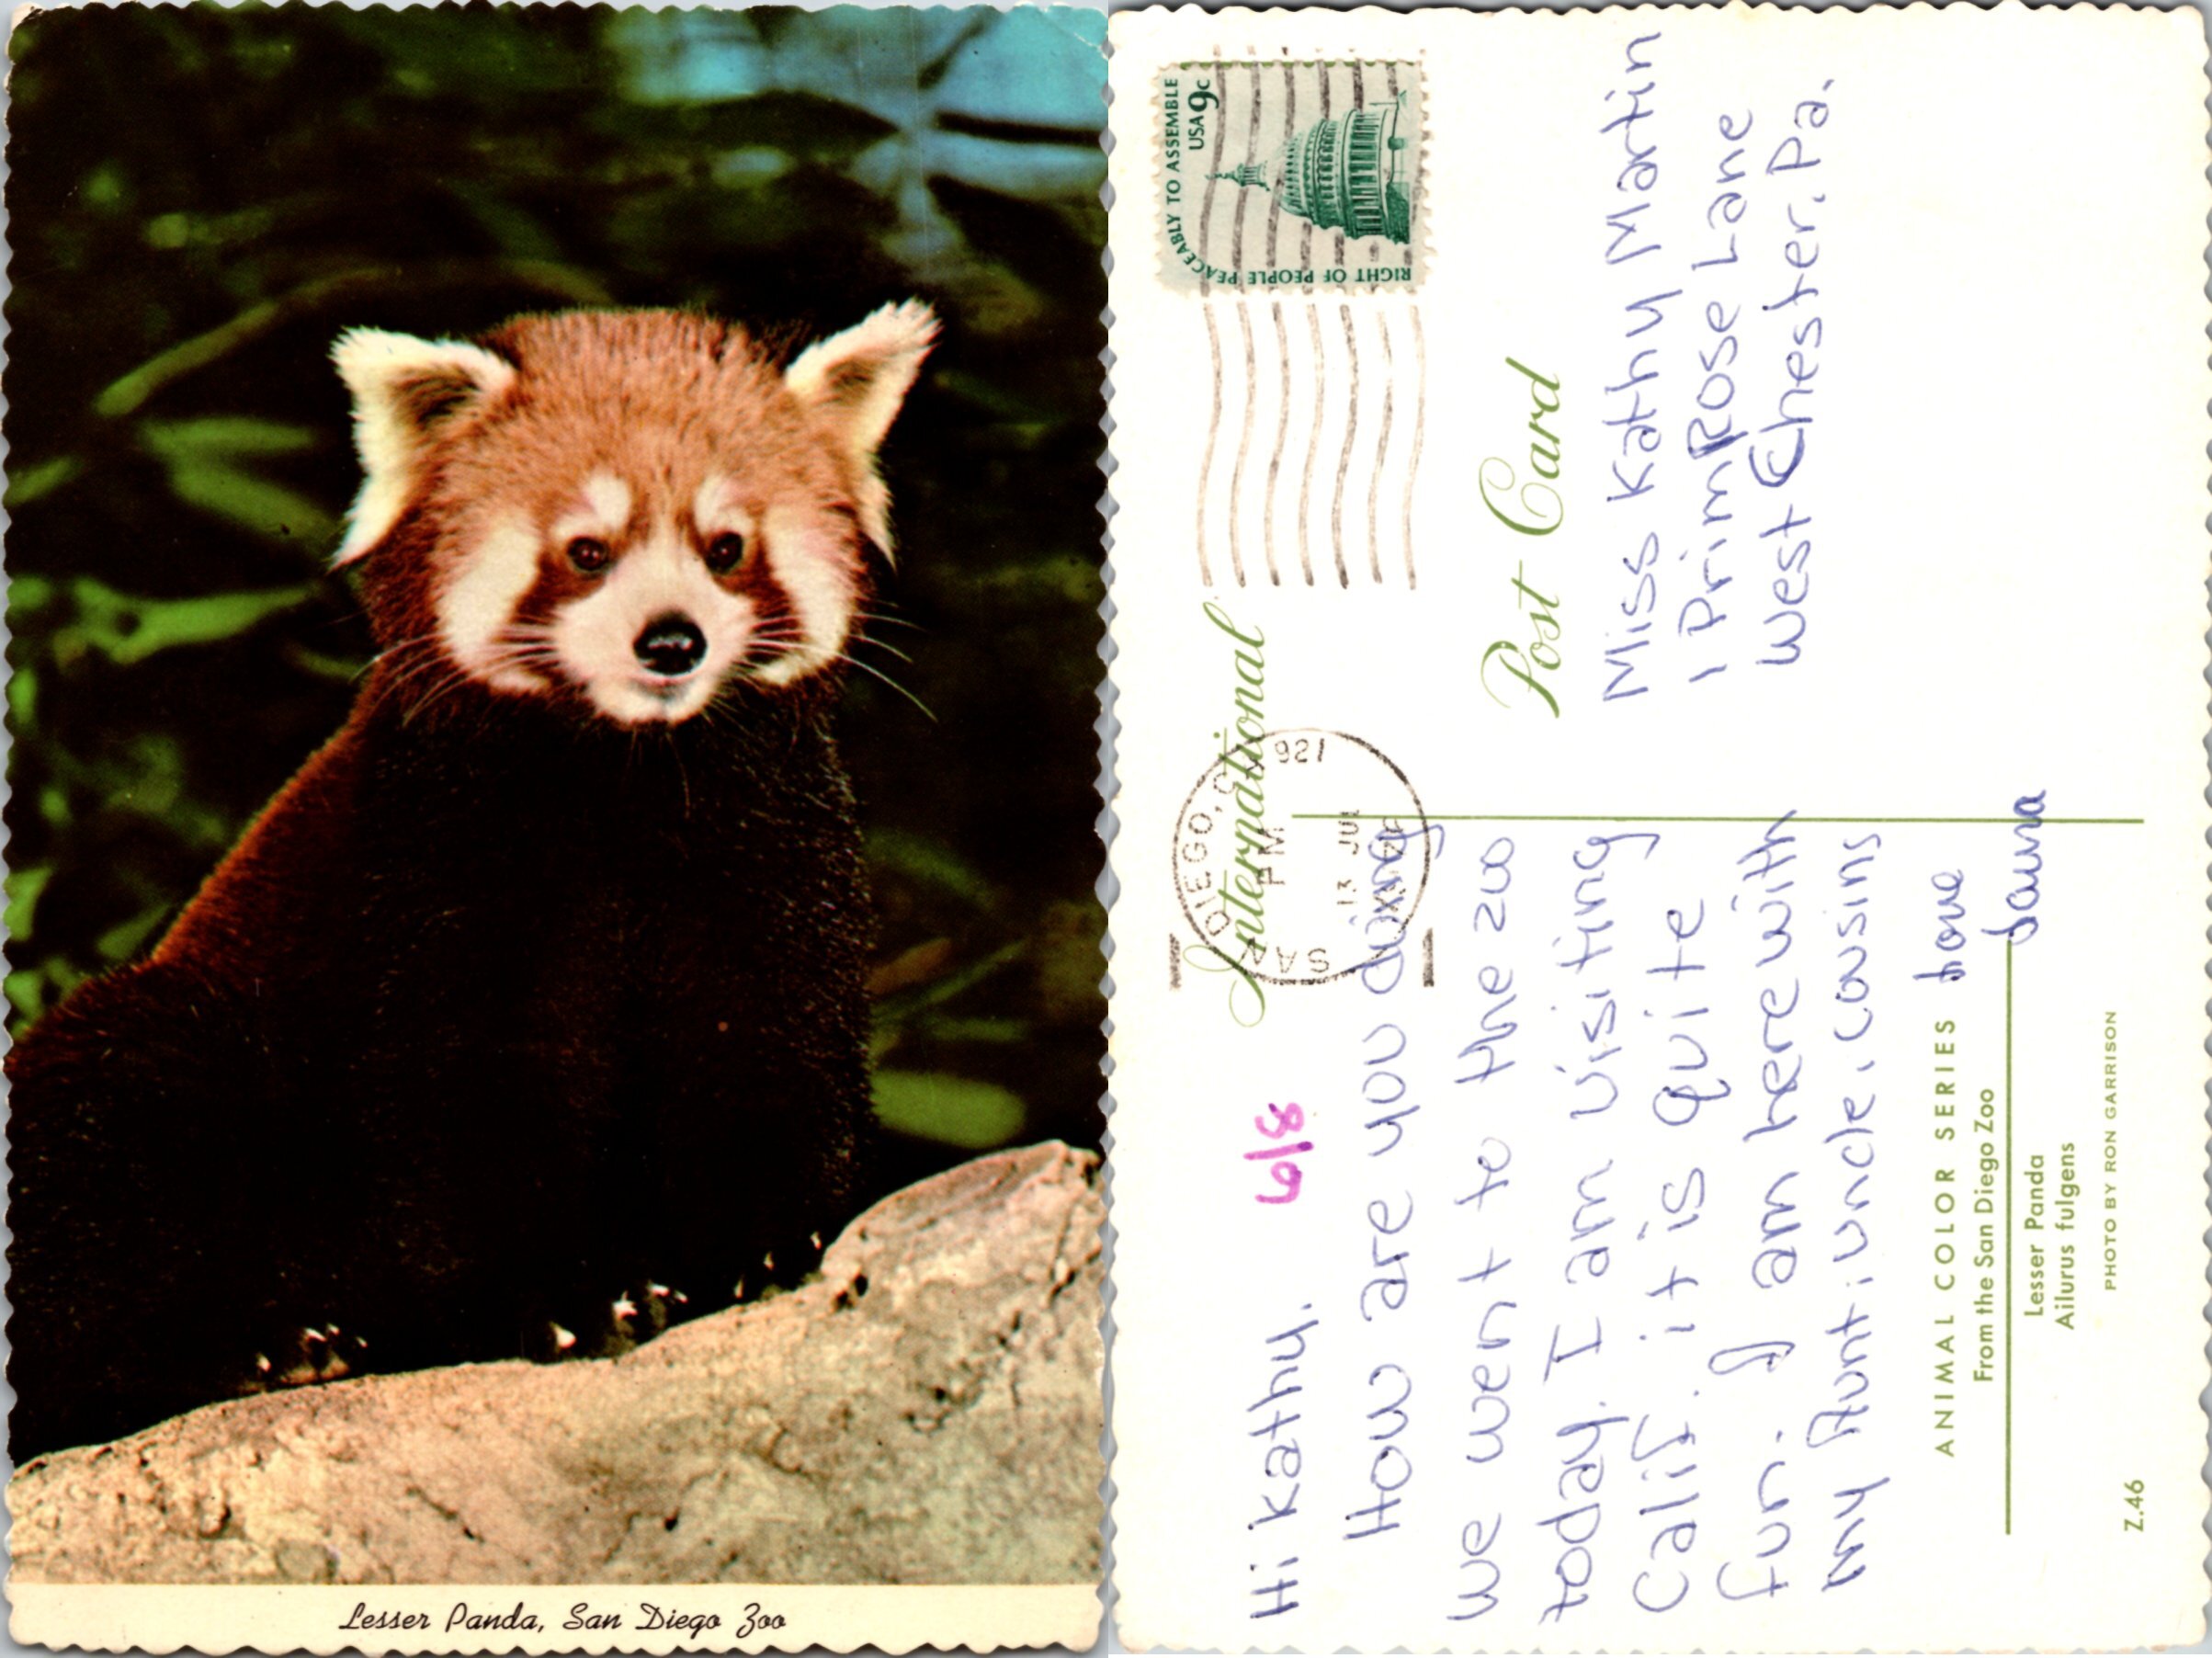 Lesser Panda, San Diego Zoo
RIGHT OF PEOPLE PEACEABLY TO ASSEMBLE
USA 9c
SAN DIEGO, CA
921
PM
13 JUL
International
Post Card
6/8
Hi Kathy.
How are you doing
we went to the zoo
today. I am visiting
Calif. it is quite
fun. I am here with
my Aunt, uncle, cousins
Love
Laura
Miss Kathy Martin
1 PrimRose Lane
West Chester, Pa.
ANIMAL COLOR SERIES
From the San Diego Zoo
Lesser Panda
Ailurus fulgens
PHOTO BY RON GARRISON
Z.46